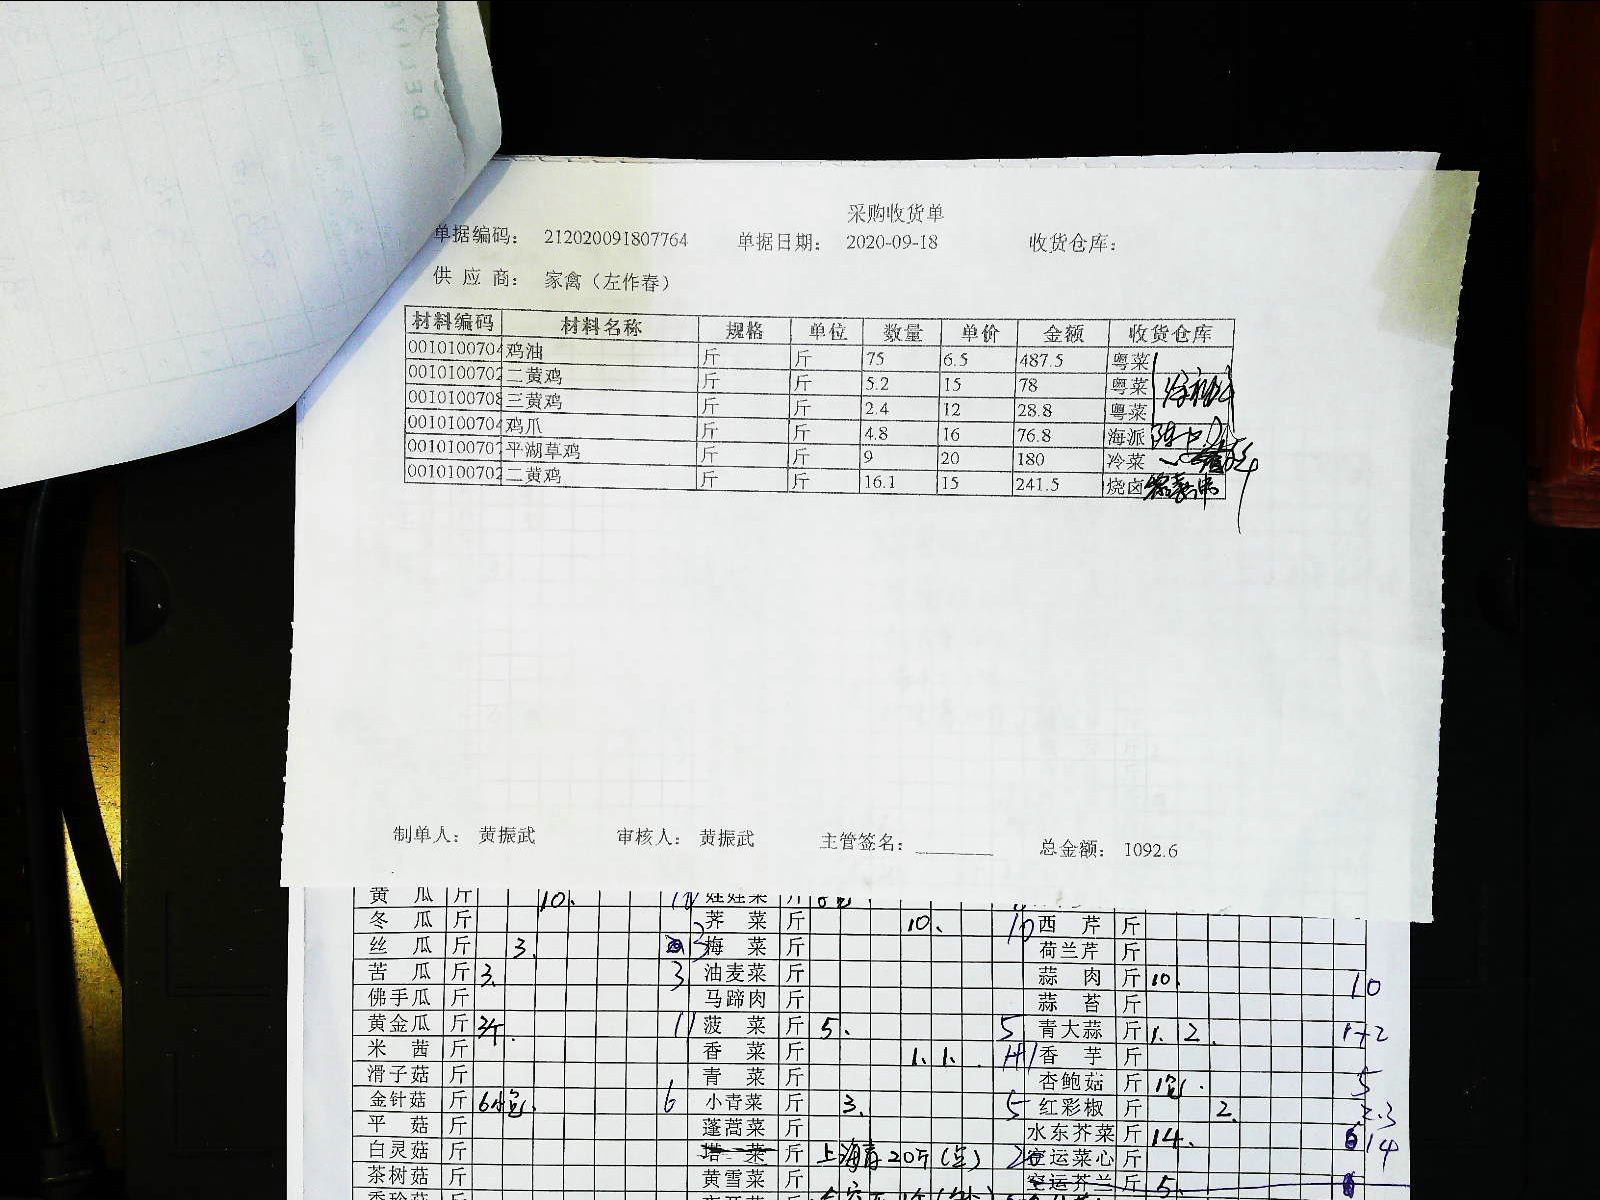 采购收货单
单据编码： 212020091807764 单据日期： 2020-09-18 收货仓库：
供 应 商： 家禽（左作春）
材料编码 材料名称 规格 单位 数量 单价 金额 收货仓库
0010100704 鸡油 斤 斤 75 6.5 487.5 粤菜
0010100702 二黄鸡 斤 斤 5.2 15 78 粤菜
0010100708 三黄鸡 斤 斤 2.4 12 28.8 粤菜
0010100704 鸡爪 斤 斤 4.8 16 76.8 海派
0010100707 平湖草鸡 斤 斤 9 20 180 冷菜
0010100702 二黄鸡 斤 斤 16.1 15 241.5 烧卤
制单人： 黄振武 审核人： 黄振武 主管签名： 总金额： 1092.6
黄 瓜 斤 10. 娃娃菜 斤
冬 瓜 斤 荠 菜 斤 10. 10 西 芹 斤
丝 瓜 斤 3. 3 梅 菜 斤 荷兰芹 斤
苦 瓜 斤 3. 3 油麦菜 斤 蒜 肉 斤 10. 10
佛手瓜 斤 马蹄肉 斤 蒜 苔 斤
黄金瓜 斤 11 菠 菜 斤 5. 5 青大蒜 斤 1. 2. 1+2
米 茜 斤 香 菜 斤 1. 1. 1+1 香 芋 斤
滑子菇 斤 青 菜 斤 杏鲍菇 斤 1包. 5
金针菇 斤 6小包. 6 小青菜 斤 3. 5 红彩椒 斤 2. 2.3
平 菇 斤 蓬蒿菜 斤 水东芥菜 斤 14. 14
白灵菇 斤 塔 菜 斤 上海青20斤(点) 空运菜心 斤
茶树菇 斤 黄雪菜 斤 空运芥兰 斤 5.